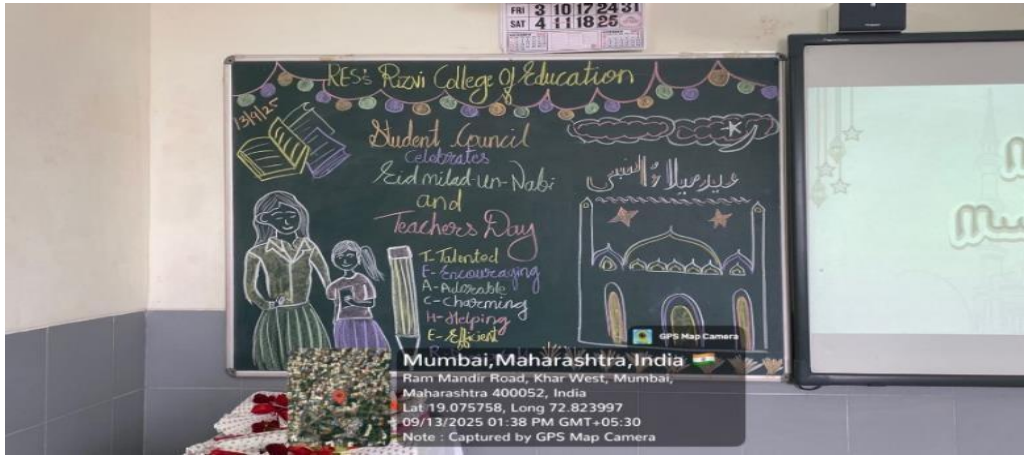 FRI 3 10 17 24 31
SAT 4 11 18 25
RES's Rizvi College Of Education
13/9/25
Student Council
Celebrates
Eid milad-un-Nabi
and
Teachers Day
T-Talented
E-Encouraging
A-Adorable
C-Charming
H-Helping
E-Efficient
عيد ميلاد النبي
GPS Map Camera
Mumbai, Maharashtra, India
Ram Mandir Road, Khar West, Mumbai,
Maharashtra 400052, India
Lat 19.075758, Long 72.823997
09/13/2025 01:38 PM GMT+05:30
Note : Captured by GPS Map Camera